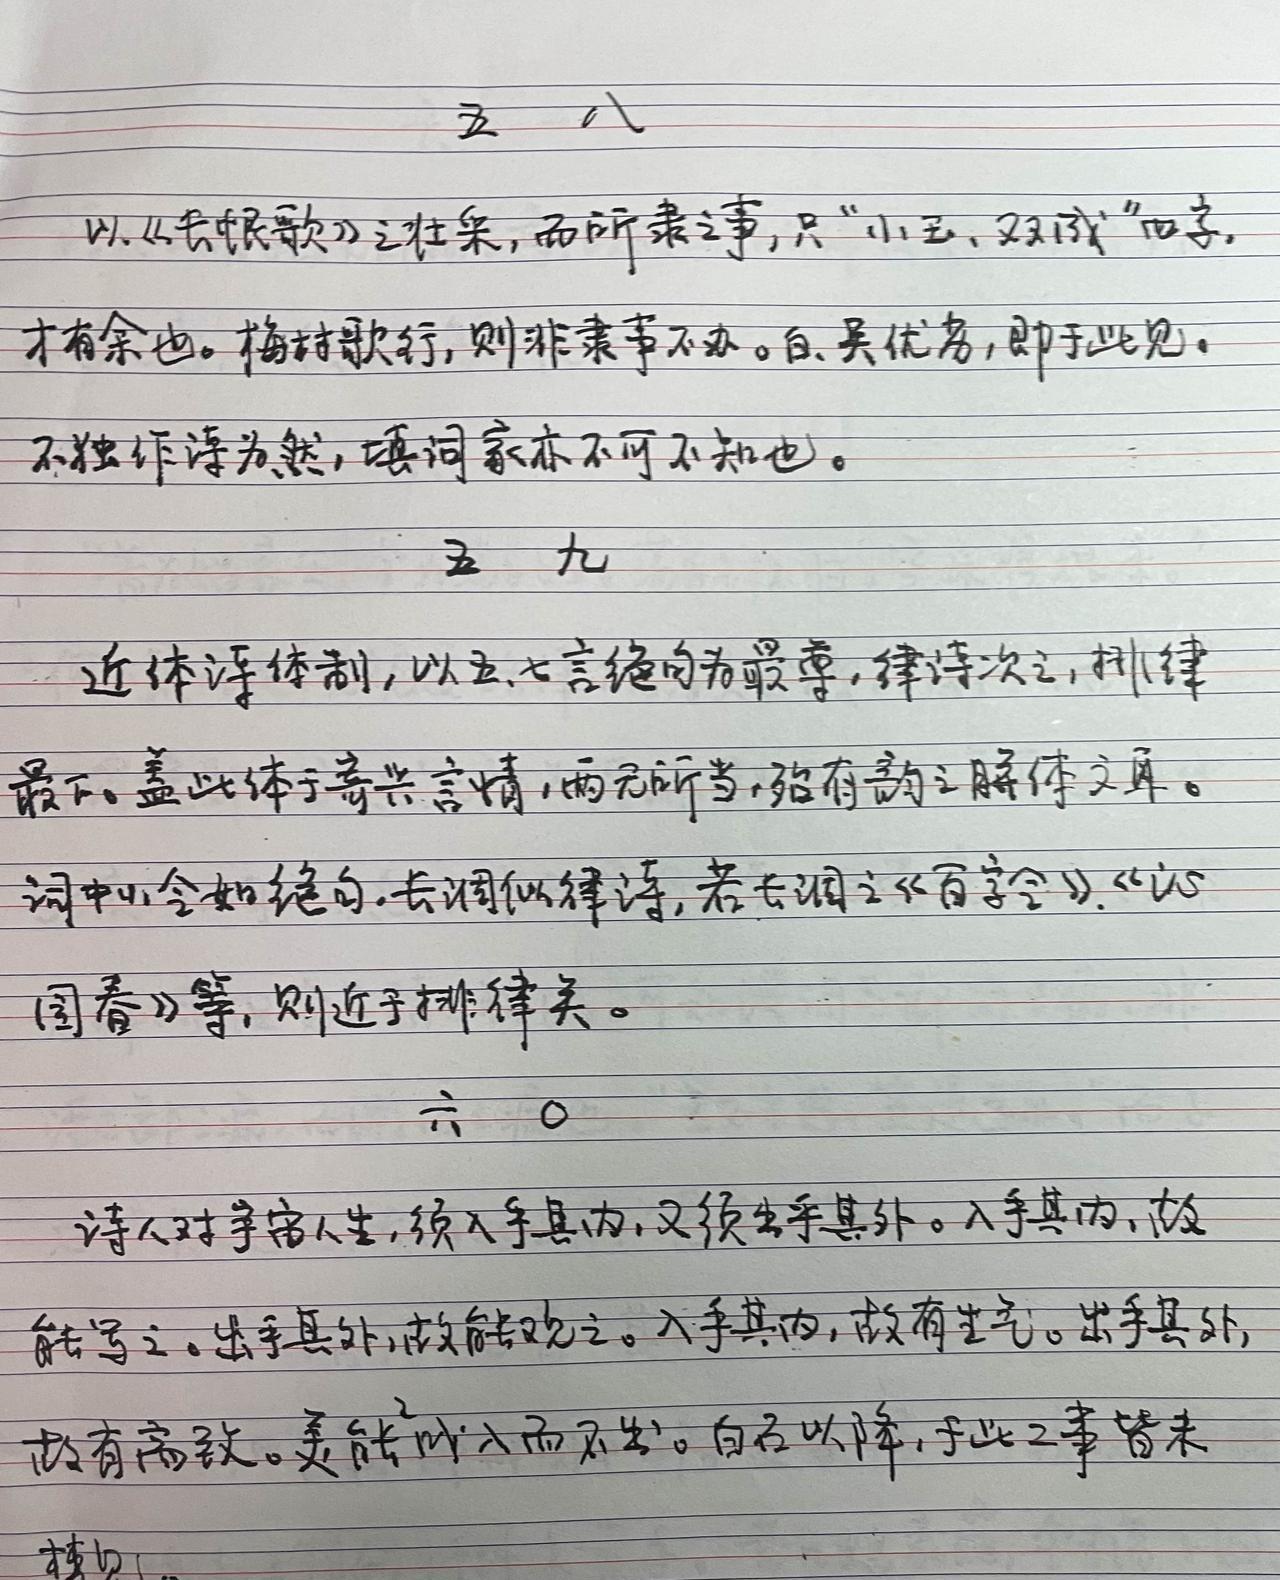 五八
以《长恨歌》之壮采,而所隶之事,只“小玉、双成”四字,
才有余也。梅村歌行,则非隶事不办。白、吴优劣,即于此见。
不独作诗为然,填词家亦不可不知也。
五九
近体诗体制,以五、七言绝句为最尊,律诗次之,排律
最下。盖此体于寄兴言情,两无所当,殆有韵之骈体文耳。
词中小令如绝句,长调似律诗,若长调之《百字令》、《沁
园春》等,则近于排律矣。
六〇
诗人对宇宙人生,须入乎其内,又须出乎其外。入乎其内,故
能写之。出乎其外,故能观之。入乎其内,故有生气。出乎其外,
故有高致。美能成入而不出。白石以降,于此二事皆未